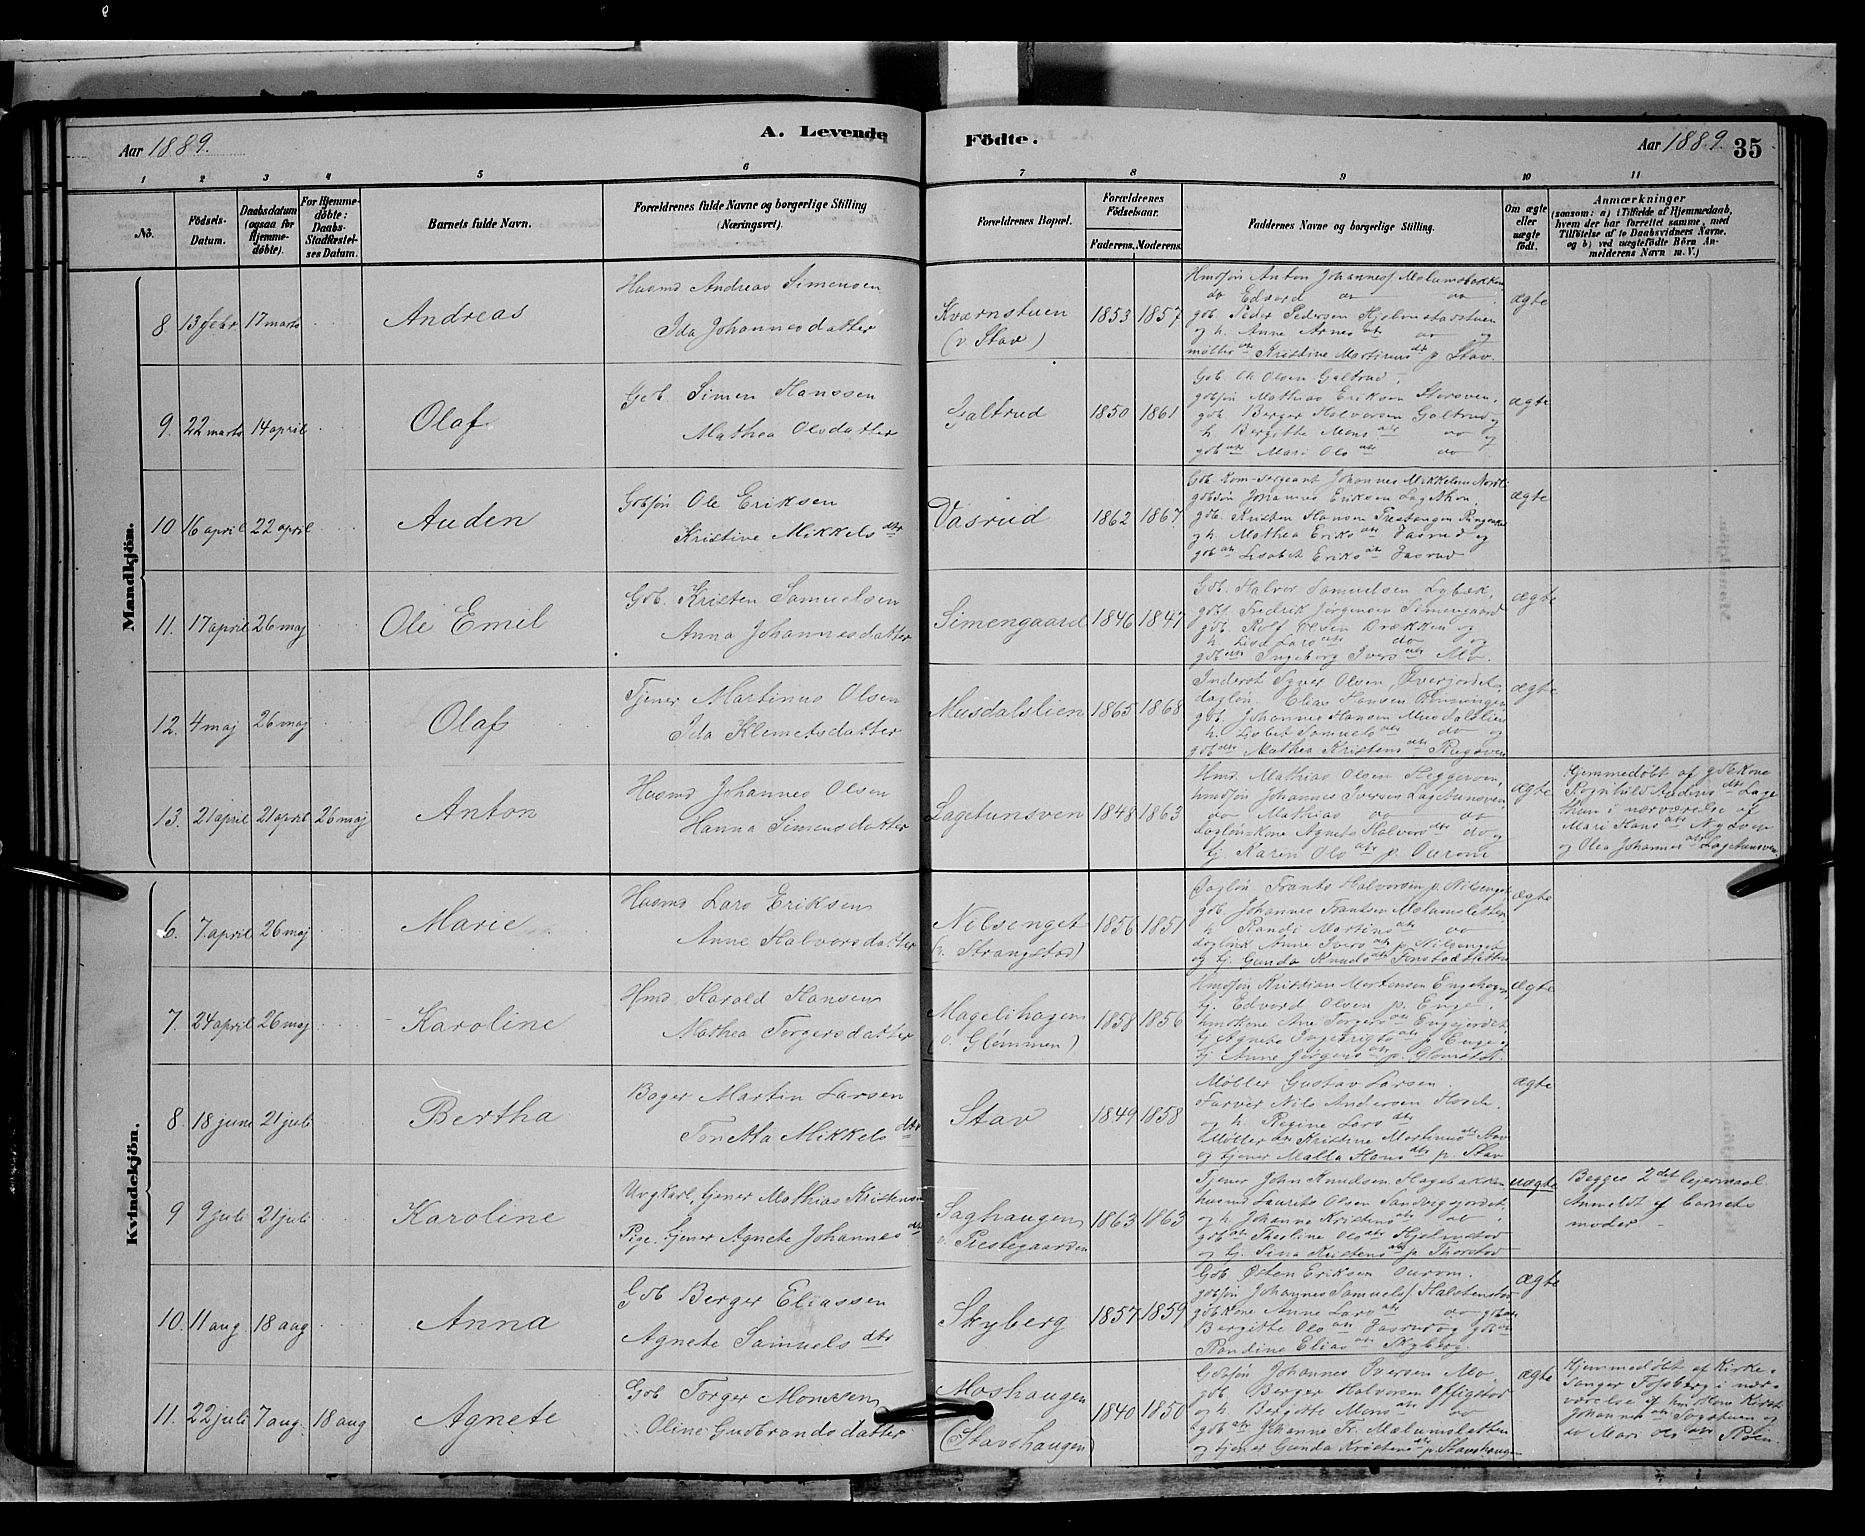 Aar 1889.
A. Levende Födte.
Aar 1889.
35
1 2 3 4 5 6 7 8 9 10 11
No.
Födsels-Datum.
Daabsdatum (ogsaa for Hjemme-döbte).
For Hjemme-döbte: Daabs-Stadfæstel-ses Datum.
Barnets fulde Navn.
Forældrenes fulde Navne og borgerlige Stilling (Næringsvei).
Forældrenes Bopæl.
Forældrenes Födselsaar.
Faderens. Moderens.
Faddernes Navne og borgerlige Stilling.
Om ægte eller uægte födt.
Anmærkninger
(saasom: a) i Tilfælde af Hjemmedaab,
hvem der har forrettet samme, med
Tilföielse af to Daabsvidners Navne,
og b) ved uægtefödte Börn An-
melderens Navn m. V.)
Mandkjön.
8 13 febr 17 marts Andreas
Husmd Andreas Simensen
Ida Johannesdatter
Kværnstuen
(v Stav)
1853 1857
Hmdsön Anton Johannes Mælumsbakken
do Edvard do do
gdb. Peder Pedersen Hjelmstadstuen
og h. Anne Arnes dtr do og
møller dtr Kristine Martinus dtr p. Stav.
ægte
9. 22 marts 14 april Olaf
Gdb Simen Hanssen
Mathea Olsdatter
Galtrud
1850 1861
Gdb. Ole Olsen Galtrud,
gdbsön Mathias Eriksen
gdb. Berger Halvorsen Galtrud og
h. Bergitte Mons dtr do og
gdb dtr Mari Ols dtr do
ægte
10 16 april 22 april Auden
Gdbsön Ole Eriksen
Kristine Mikkels dtr
Vasrud
1862 1867
Gdb. Kom-Sergeant Johannes Mikkelsen Nordli
gdbsön Johannes Eriksen
gdb. Kristen Hansen
og h. Mathea Eriks dtr og
gdb dtr Lisabet Eriks dtr
ægte
11. 17 april 26 maj Ole Emil
Gdb. Kristen Samuelsen
Anna Johannesdatter
Simengaard
1846 1847
Gdb. Halvor Samuelsen Lybæk,
gdbs. Fredrik Jørgensen Simengaard
gdb Rolf Olsen Brækken og
h. Lisa Lars dtr do og
gdb dtr Ingeborg Ivers dtr Mo.
ægte
12. 4 maj 26 maj Olaf
Tjener Martinus Olsen
Ida Klemetsdatter
Musdalslien
1865 1868
Inderst Syver Olsen
dagløn. Elias Hansen
gdb Johannes Hansen Musdalslien
h. Lisbet Samuels dtr do og
gdb dtr Mathea Kristens dtr
ægte
13. 21 april 21 april 26 maj Anton
Husmd Johannes Olsen
Hanna Simensdatter
Lagetunsven
1848 1863
Hmd. Mathias Olsen Heggerven,
hmdsön Johannes Iversen Lagetunsven
do Mathias do do
dagløn-kone Agnete Halvors dtr do og
tj Karen Ols dtr p. Ourom
ægte
Hjemmedøbt af gdbkone
Rognhild Audens dtr Lage
thun i nærværelse af
Mari Hans dtr
og Olea Johannes dtr Lagetunsven.
Kvindekjön.
6. 7. april 26 maj Marie
Husmd Lars Eriksen
Anne Halvorsdatter
Nilsenget
(v. Strangstad)
1856 1851
Dagløn Frants Halvorsen p. Nilsenget
gdb. Johannes Frantsen Mælumsletten
h Randi Martins dtr do
Anne Ivers dtr p. Nilsenget
og tj. Gunda Knuds dtr
ægte
7. 24 april 26 maj Karoline
Hmd Harald Hansen
Mathea Torgersdatter
Magelihagen
(v. Glemmen)
1858 1856
Hmdsön Kristian Mortensen Engehagen,
tj. Edvard Olsen p. Enge.
hmdkone Ane Torgers dtr Engejordet
tj Agnete dtr p. Enge og
tj. Anne Jørgens dtr p.
ægte
8. 18 june 21 juli Bertha
Bager Martin Larsen
Tonetta Mikkels dtr
Stav
1849 1858
Møller Gustav Larsen.
Farver Nils Andersen
og h. Regine Lars dtr
Møller dtr Kristine Martinus dtr Stav
og tjener Malla Hans dtr p. Stav
ægte
9 9 juli 21 juli Karoline
Ungkarl, tjener Mathias Kristensen
Pige. tjener Agnete Johannes dtr
Saghaugen
v. Prestegaarden
1863 1863
Tjener John Knudsen Hagebakken
husmd Laurits Olsen Sandvigsjordet,
og h. Johanne Kristens dtr do
gdb dtr Ols dtr Hjelmstad
og tj. Sina Kristens dtr p. Thorstad
uægte
Begges 2det lejermaal
Anmeldt af barnets
moder.
10. 11 aug 18 aug Anna
Gdb Berger Eliassen
Agnete Samuels dtr
Skyberg
1857 1859
Gdb Østen Eriksen Ourom.
gdbsön Johannes Samuels
gdbkone Anne Lars dtr do gdb dtr
Bergitte Ols dtr og gdb dtr
Randine Elias dtr Skyberg.
ægte
11. 22 juli 7 aug. 18 aug Agnete
Gdb Torger Monssen
Oline Gudbrandsdatter
Moshaugen
(Stavshaugen)
1840 1850
Gdbsön Johannes Iversen Mo.
gdb. Berger Halvorsen Offigstad
og h Bergitte Mons dtr do
gdb dtr Johanne Fr. Mælumsletten
og tjener Gunda Kristens dtr p. Stavshaugen
ægte
Hjemmedøbt af Kirke-
sanger Fossberg i nær-
værelse af
Johannes dtr og
Mari Ols dtr